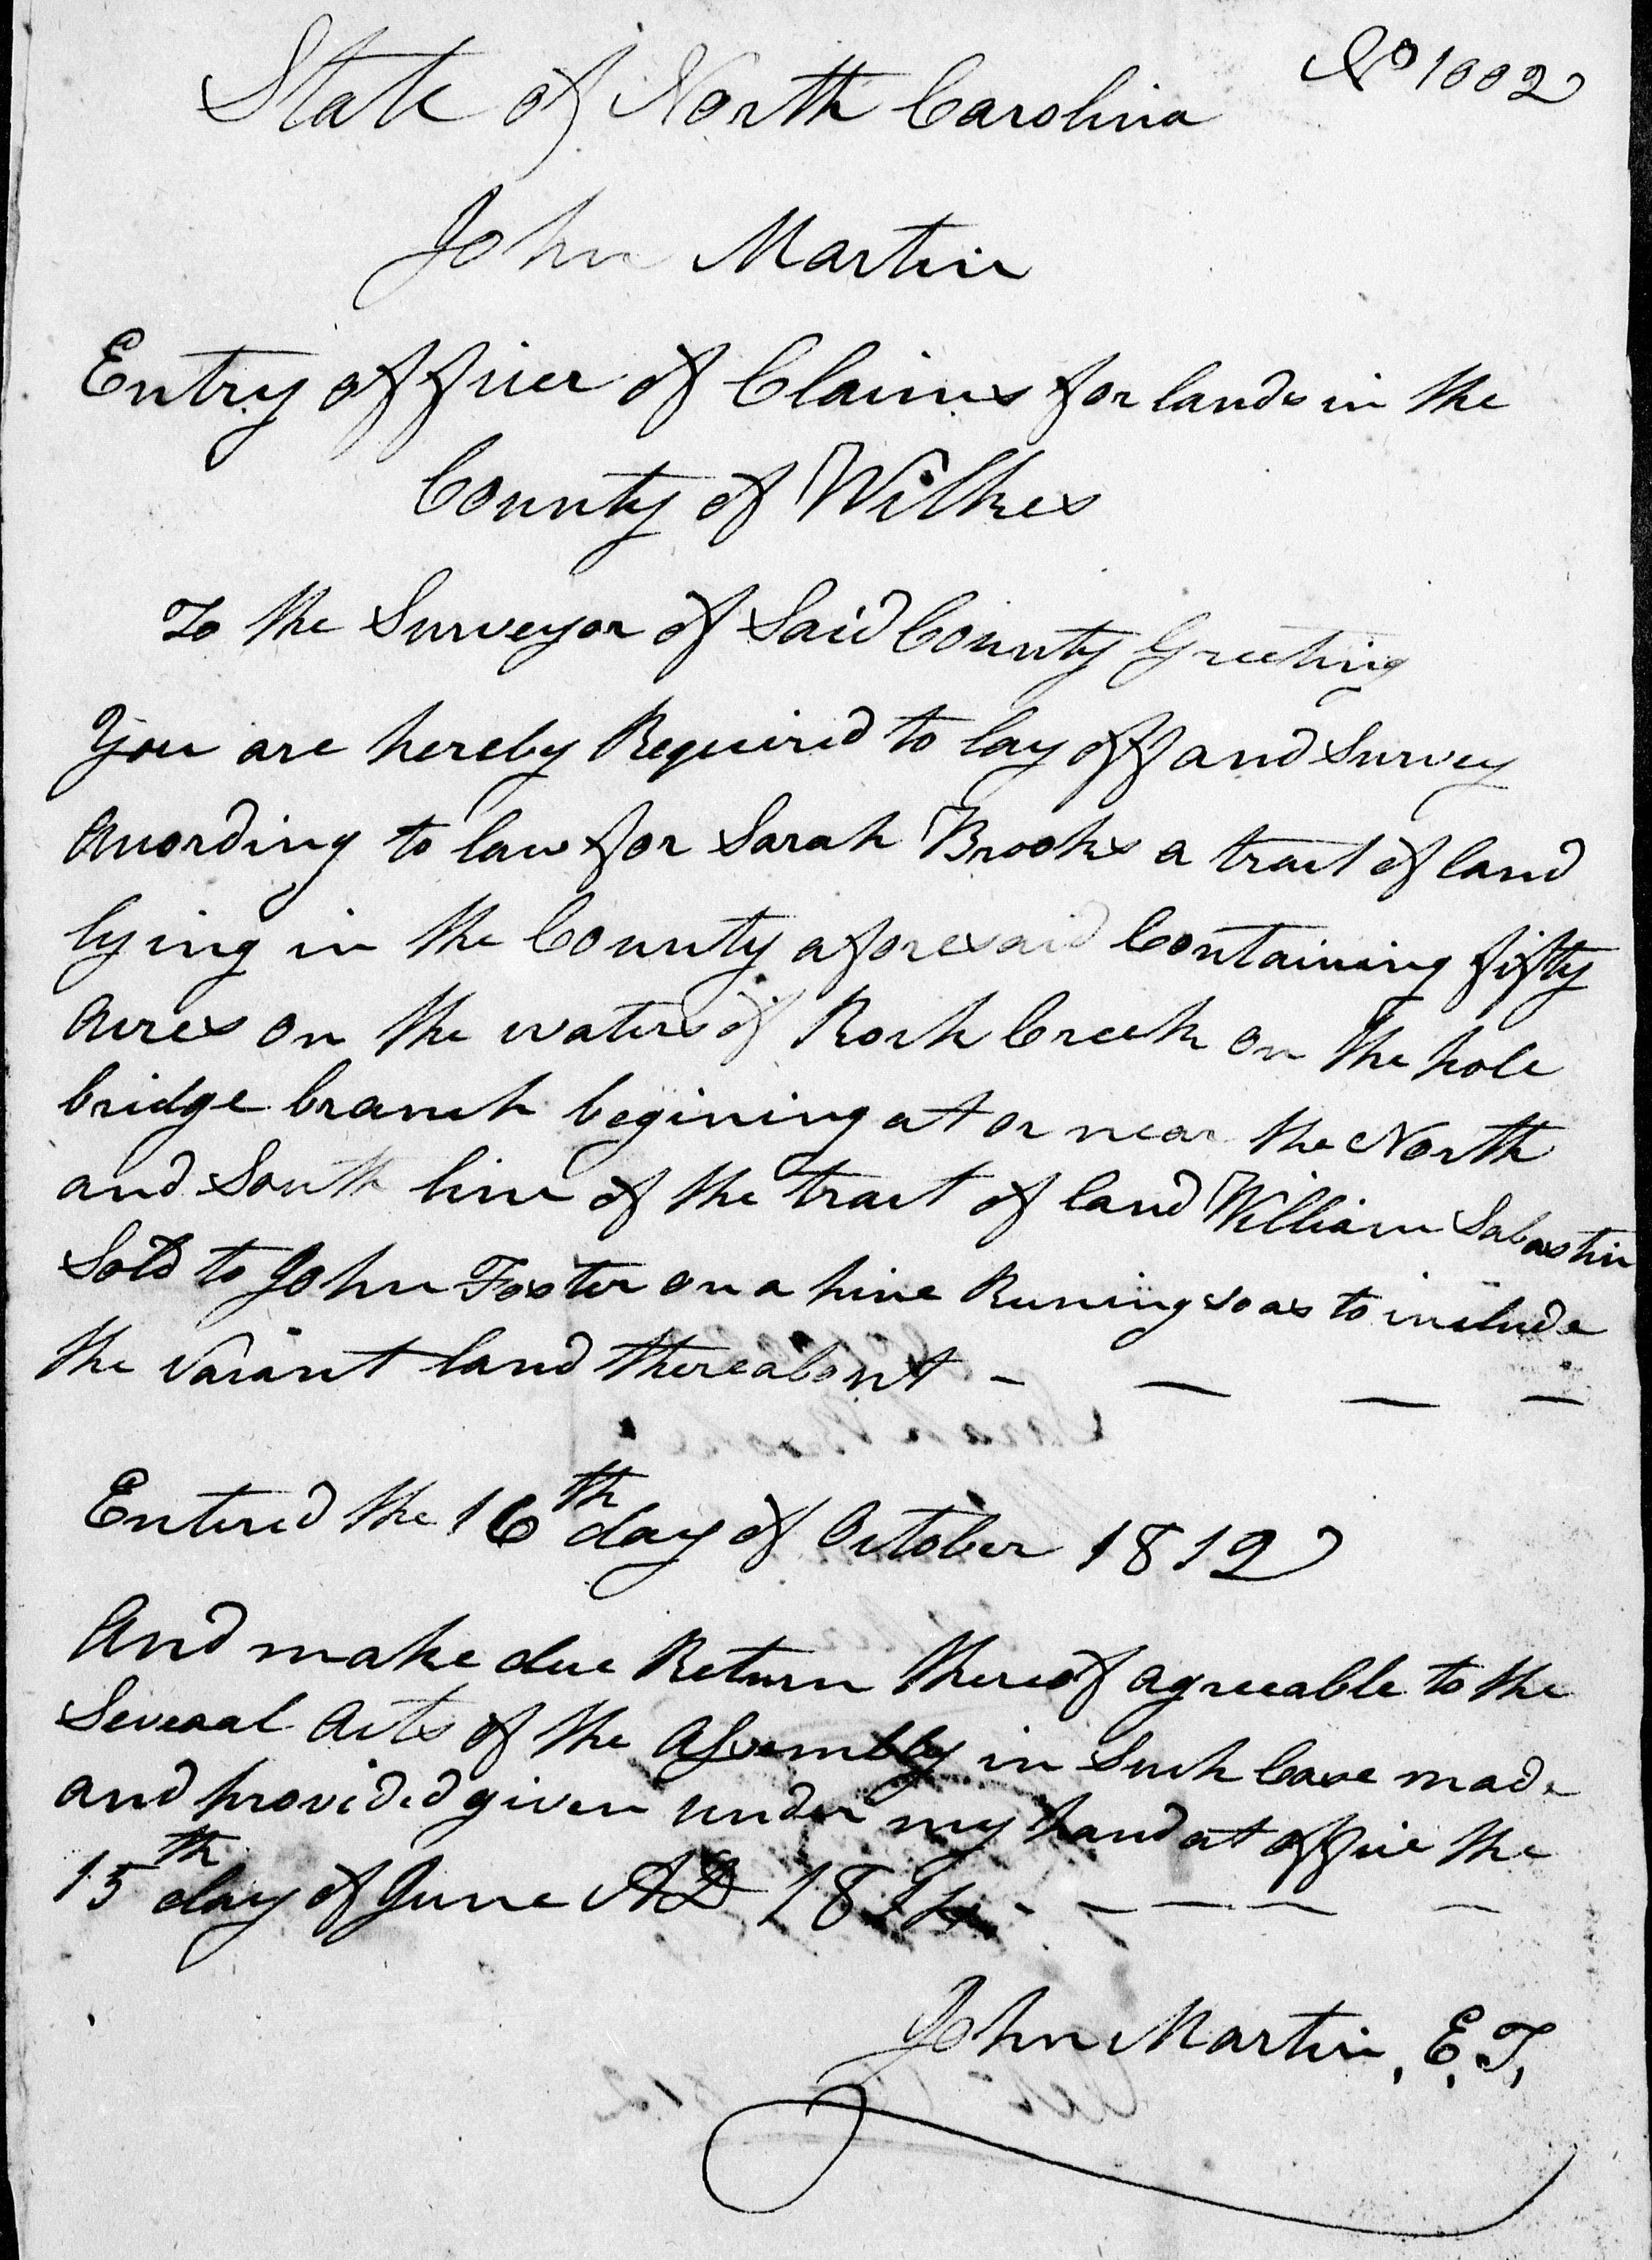 No 1002
State of North Carolina
John Martin
Entry officer of Claims for lands in the
County of Wilkes
To the Surveyor of Said County Greeting
You are hereby Required to lay off and Survey
According to law for Sarah Brooks a tract of land
lying in the County aforesaid Containing fifty
Acres on the waters of Rock Creek on the pole
bridge branch begining at or near the North
and South line of the tract of land William Sabastin
Sold to John Foster on a line Runing so as to include
the Vacant land thereabout - - - -
Entered the 16th day of October 1812
And make due Return thereof agreeable to the
Several Acts of the Assembly in Such Case made
and provided given under my hand at office the
15th day of June AD 1814 - - - - -
John Martin, E.T,